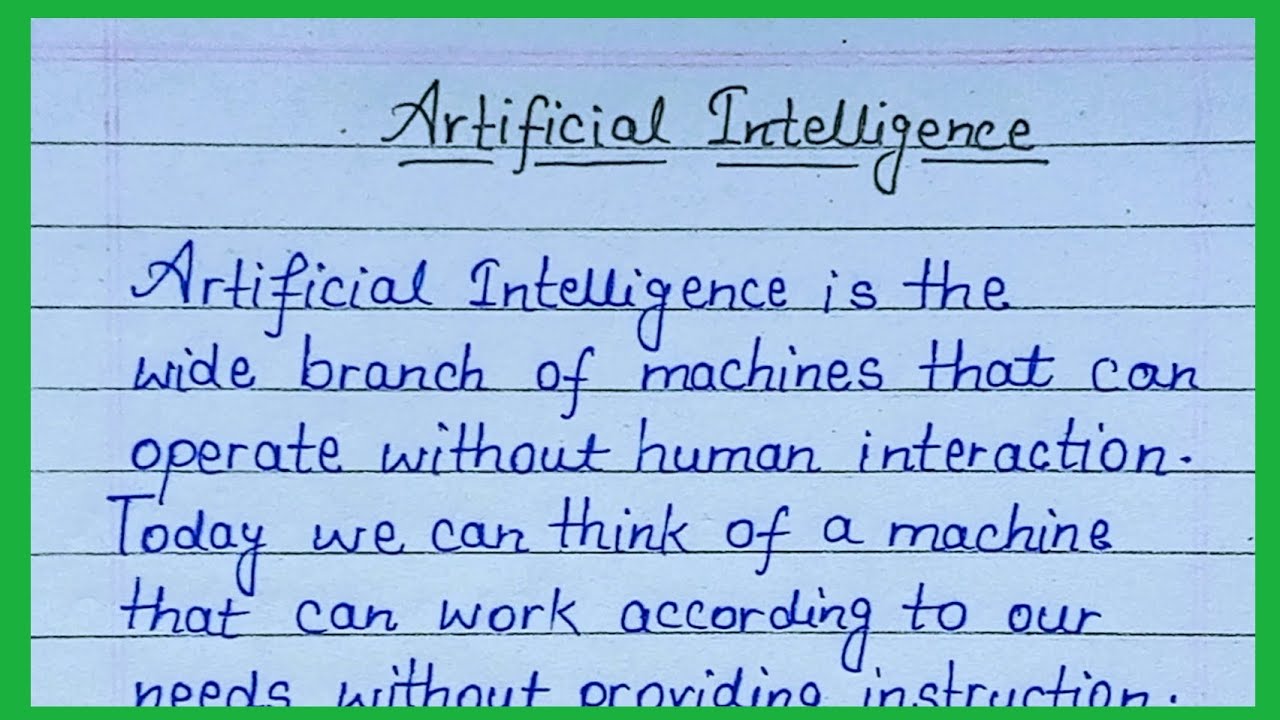 Artificial Intelligence
Artificial Intelligence is the
wide branch of machines that can
operate without human interaction.
Today we can think of a machine
that can work according to our
needs without providing instruction.